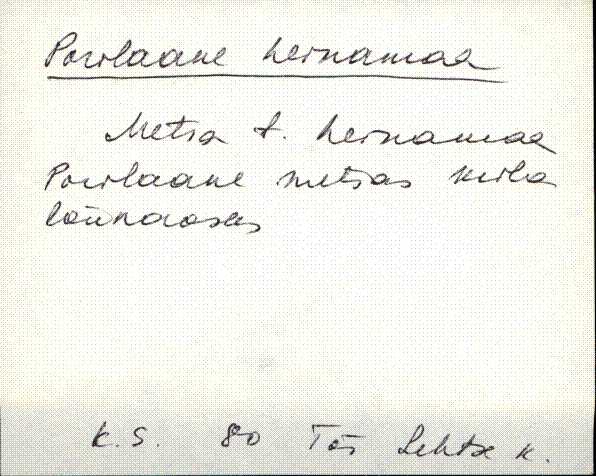 Porilaane heinamaa
Metsa t. heinamaa
Porilaane metsas küla
lõunaosas
K.S. 80 Lehtse k.